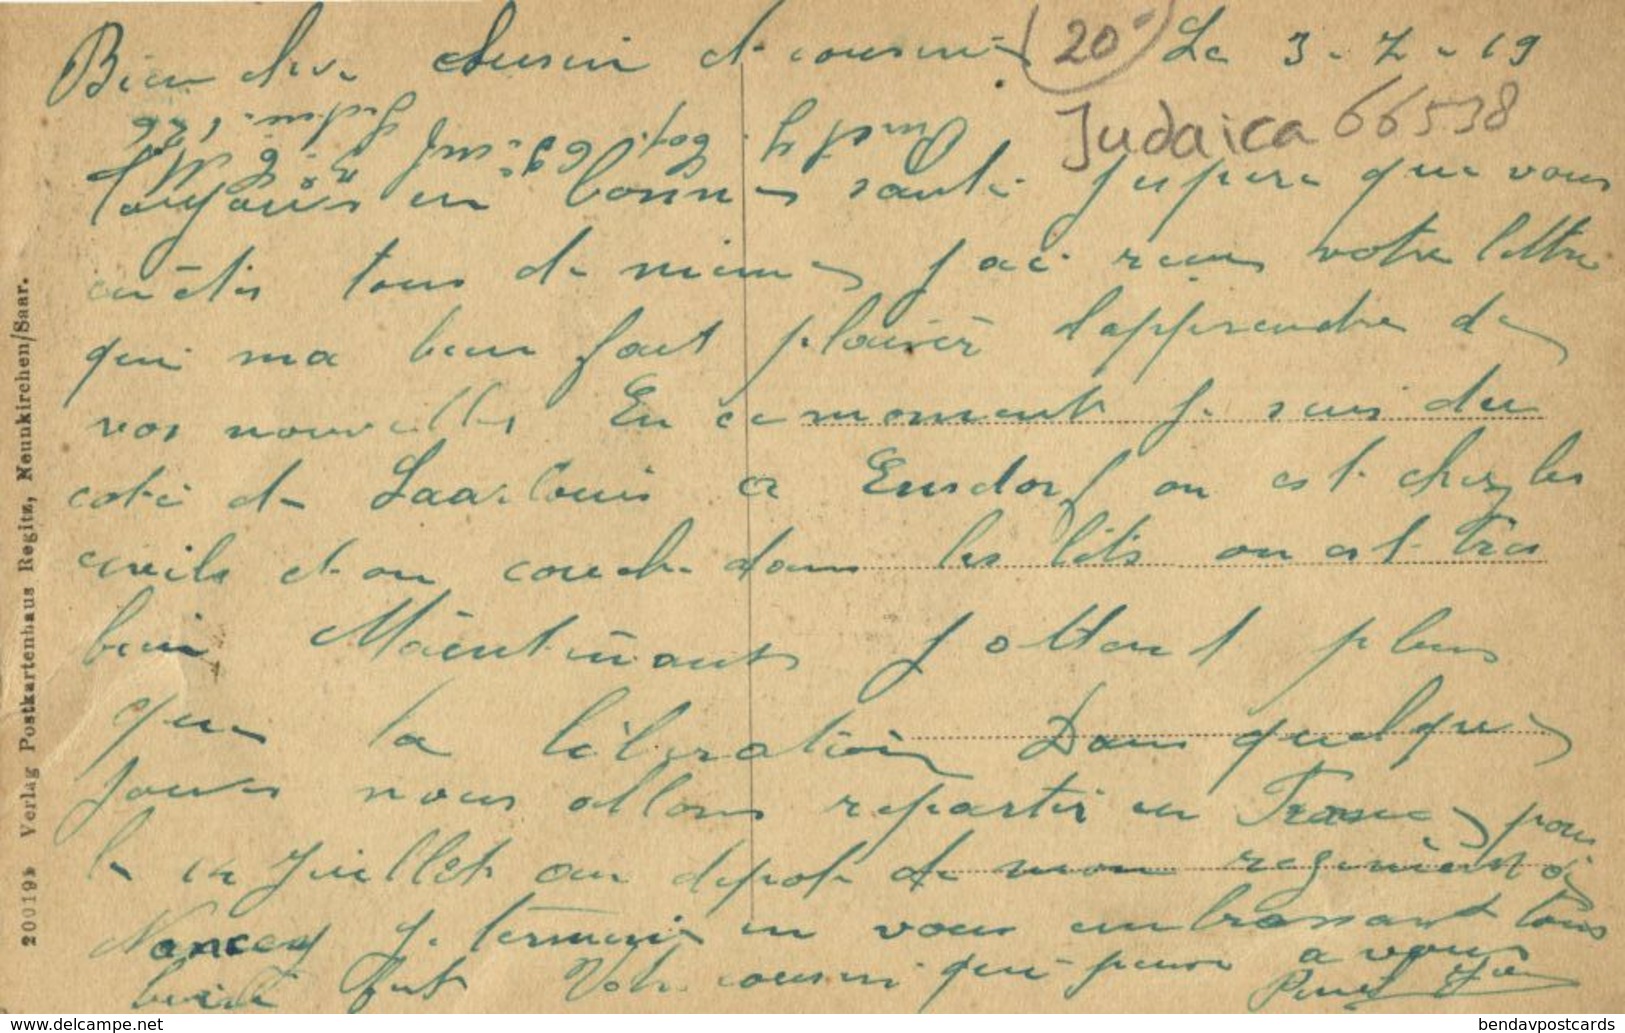 Bien cher Cousin et cousine (20-) Le 3-7-19
Judaica 66538
Toujours en bonnes santé Jespere que vous
en êtes tous de meme J ai recus votre lettre
qui ma bien fait plaisir dapprendre de
vos nouvelles En ce moment je suis du
coté de Saarlouis a Ensdorf on est chez les
civils et on couche dans les lits on est tres
bien Maintenant J attent plus
que la libération Dans quelques
Jours nous allons repartir en France pour
le 14 Juillet au depot de mon regiment a
Nancy Je termine en vous embrassant tous
bien fort Votre cousin qui pense a vous
20019b Verlag Postkartenhaus Regitz, Neunkirchen/Saar.
www.delcampe.net
bendavpostcards